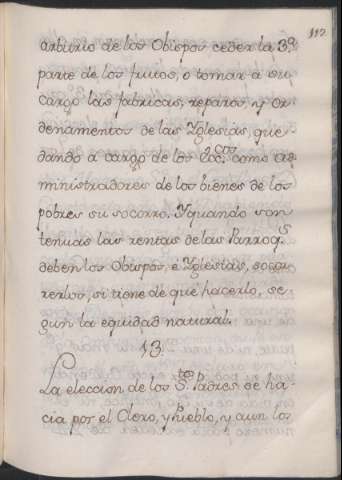 112.
arbitrio de los Obispos ceder la 3.ª
parte de los frutos, o tomar a su
cargo las fabricas, reparos, y or
denamentos de las Yglesias, que-
dando a cargo de los como ad
ministradores de los bienes de los
pobres su socorro. Y quando son
tenuas las rentas de las Parroq.s
deben los Obispos, é Yglesias, socor
rerlos, si tiene de que hacerlo, se-
gun la equidad natural.
13.
La eleccion de los S.tos Padres se ha-
cia por el Clero, y Pueblo, y aun los